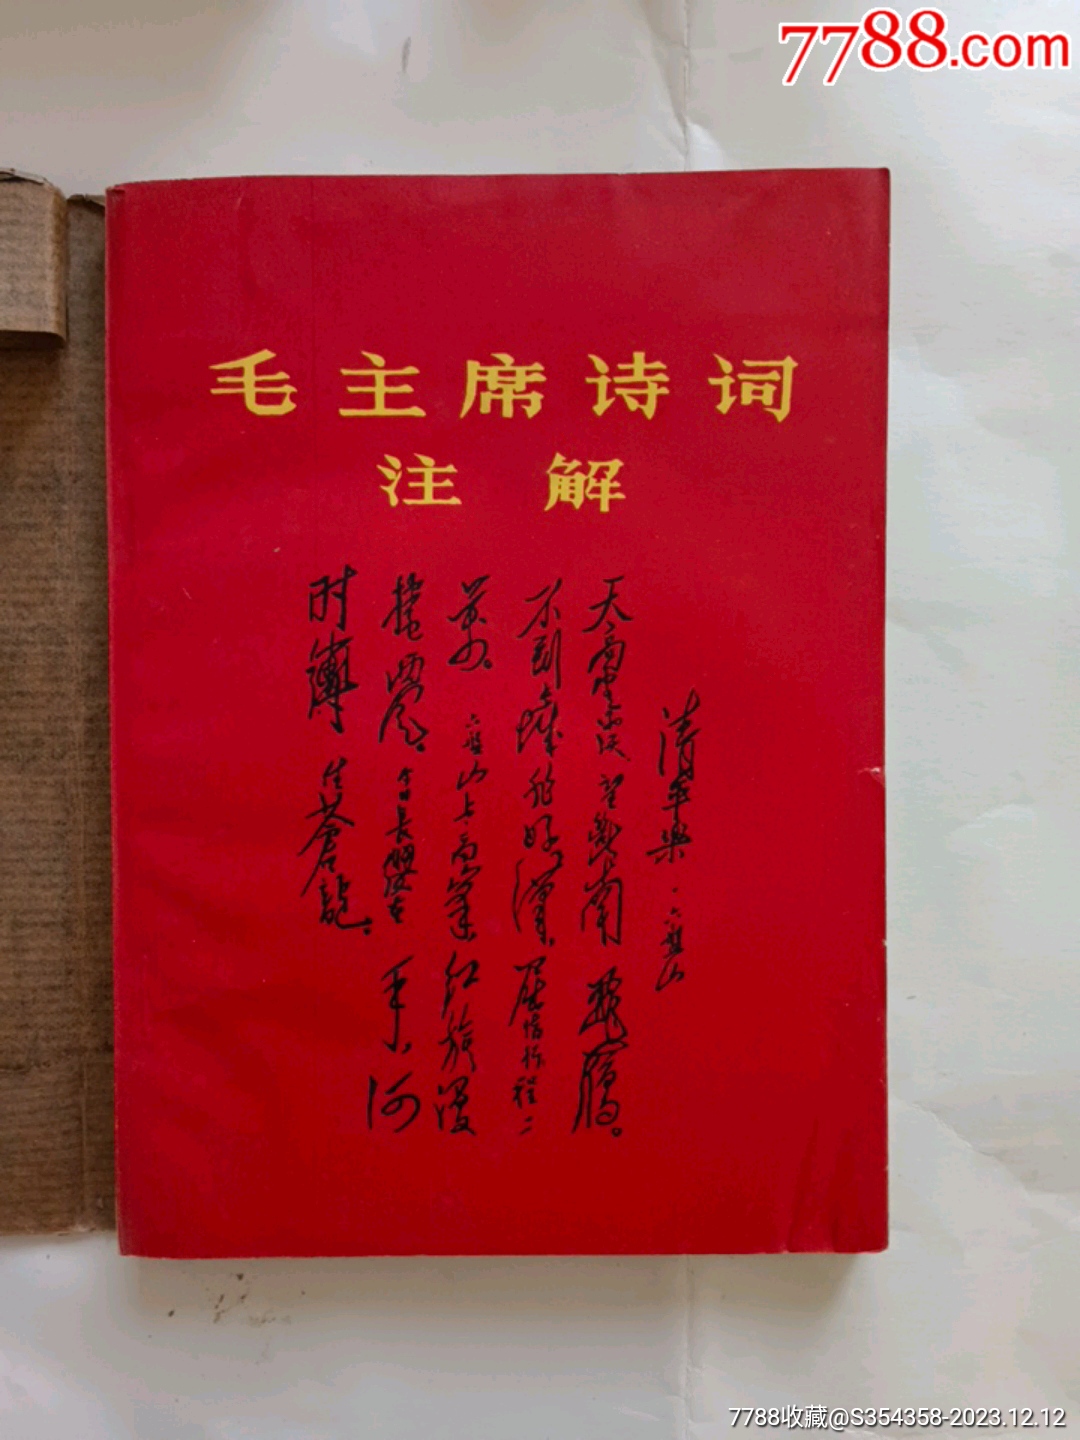 7788.com
毛主席诗词
注解
清平樂·六盤山
天高雲淡望斷南飛雁。
不到長城非好漢、屈指行程二
萬。六盤山上高峯红旗漫
捲西风。今日長缨在手、何
时縛住蒼龍。
7788收藏@S354358-2023.12.12